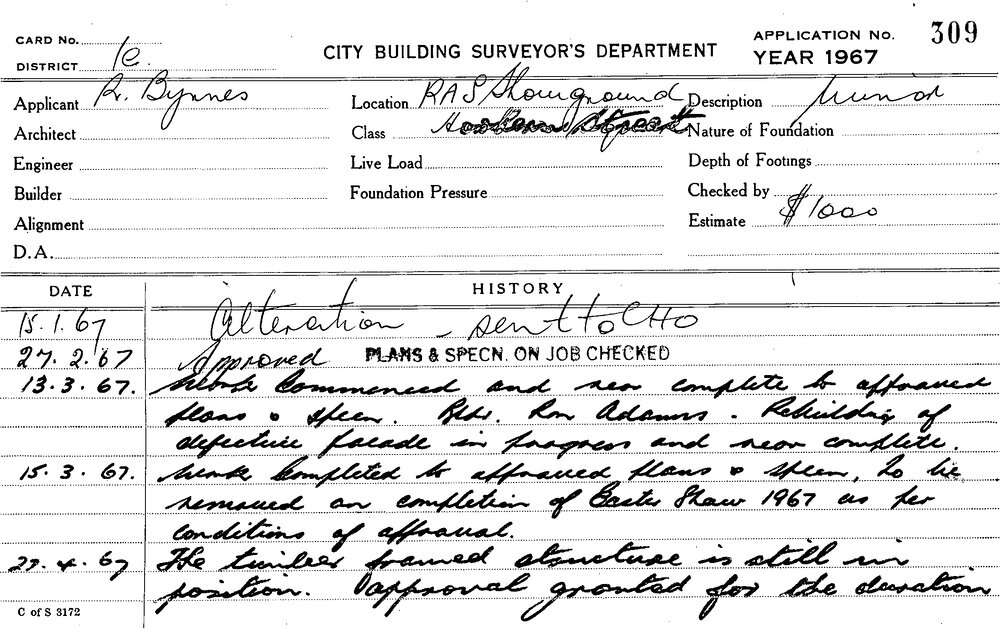 CARD No. 1c.
DISTRICT
CITY BUILDING SURVEYOR'S DEPARTMENT
APPLICATION No. 309
YEAR 1967
Applicant R. Byrnes
Location RAS Showground
Description Minor
Architect
Class
Nature of Foundation
Engineer
Live Load
Depth of Footings
Builder
Foundation Pressure
Checked by
Alignment
Estimate $1000
D.A.
DATE HISTORY
15.1.67 Alteration - sent to CHO
27.2.67 Approved PLANS & SPECN. ON JOB CHECKED
13.3.67. Work Commenced and near complete to approved
plans & specn. Bldr. Ron Adams. Rebuilding of
defective facade in progress and near complete.
15.3.67. Work Completed to approved plans & specn, To be
removed on completion of Easter Show 1967 as per
conditions of approval.
27.4.67 The timber framed structure is still in
position. Approval granted for the duration
C of S 3172